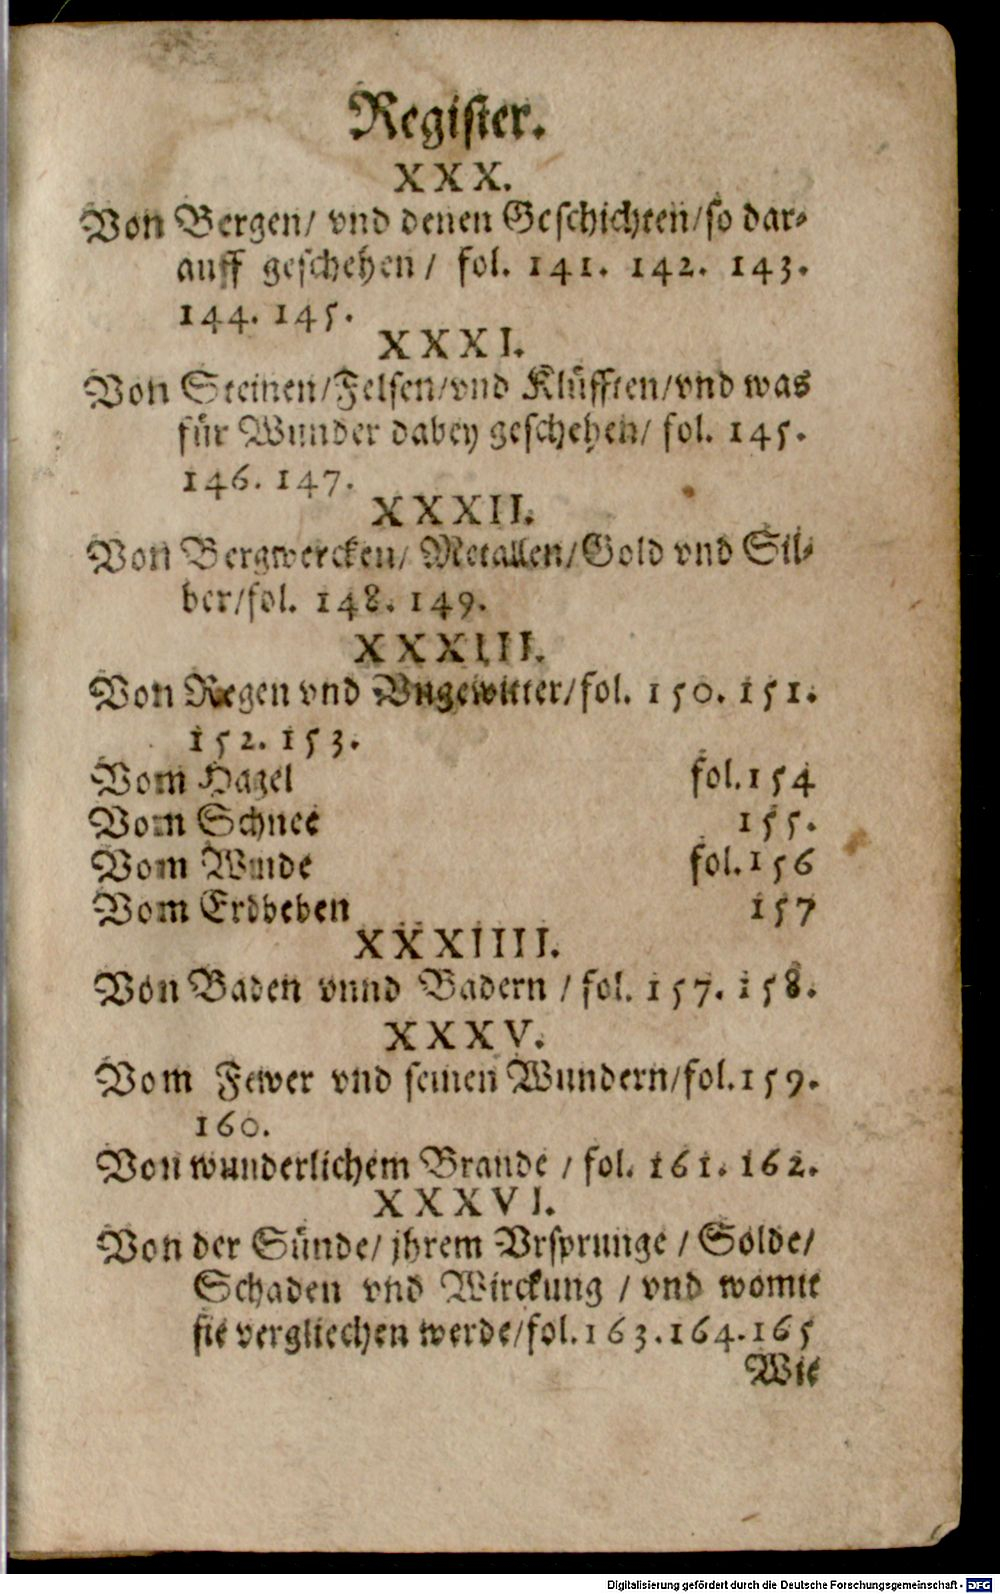 Register.
XXX.
Von Bergen/ vnd denen Geschichten/so dar-
auff geschehen/ fol. 141. 142. 143.
144. 145.
XXXI.
Von Steinen/Felsen/vnd Klüfften/vnd was
für Wunder dabey geschehen/ fol. 145.
146. 147.
XXXII.
Von Bergwercken/ Metallen/Gold vnd Sil-
ber/fol. 148. 149.
XXXIII.
Von Regen vnd Vngewitter/fol. 150. 151.
152. 153.
Vom Hagel fol.154
Vom Schnee 155.
Vom Winde fol.156
Vom Erdbeben 157
XXXIIII.
Von Baden vnnd Badern / fol. 157. 158.
XXXV.
Vom Fewer vnd seinen Wundern/fol.159.
160.
Von wunderlichem Brande / fol. 161. 162.
XXXVI.
Von der Sünde/ jhrem Vrsprunge / Solde/
Schaden vnd Wirckung / vnd womit
sie vergliechen werde/fol.163.164.165
Wie
Digitalisierung gefördert durch die Deutsche Forschungsgemeinschaft - DFG